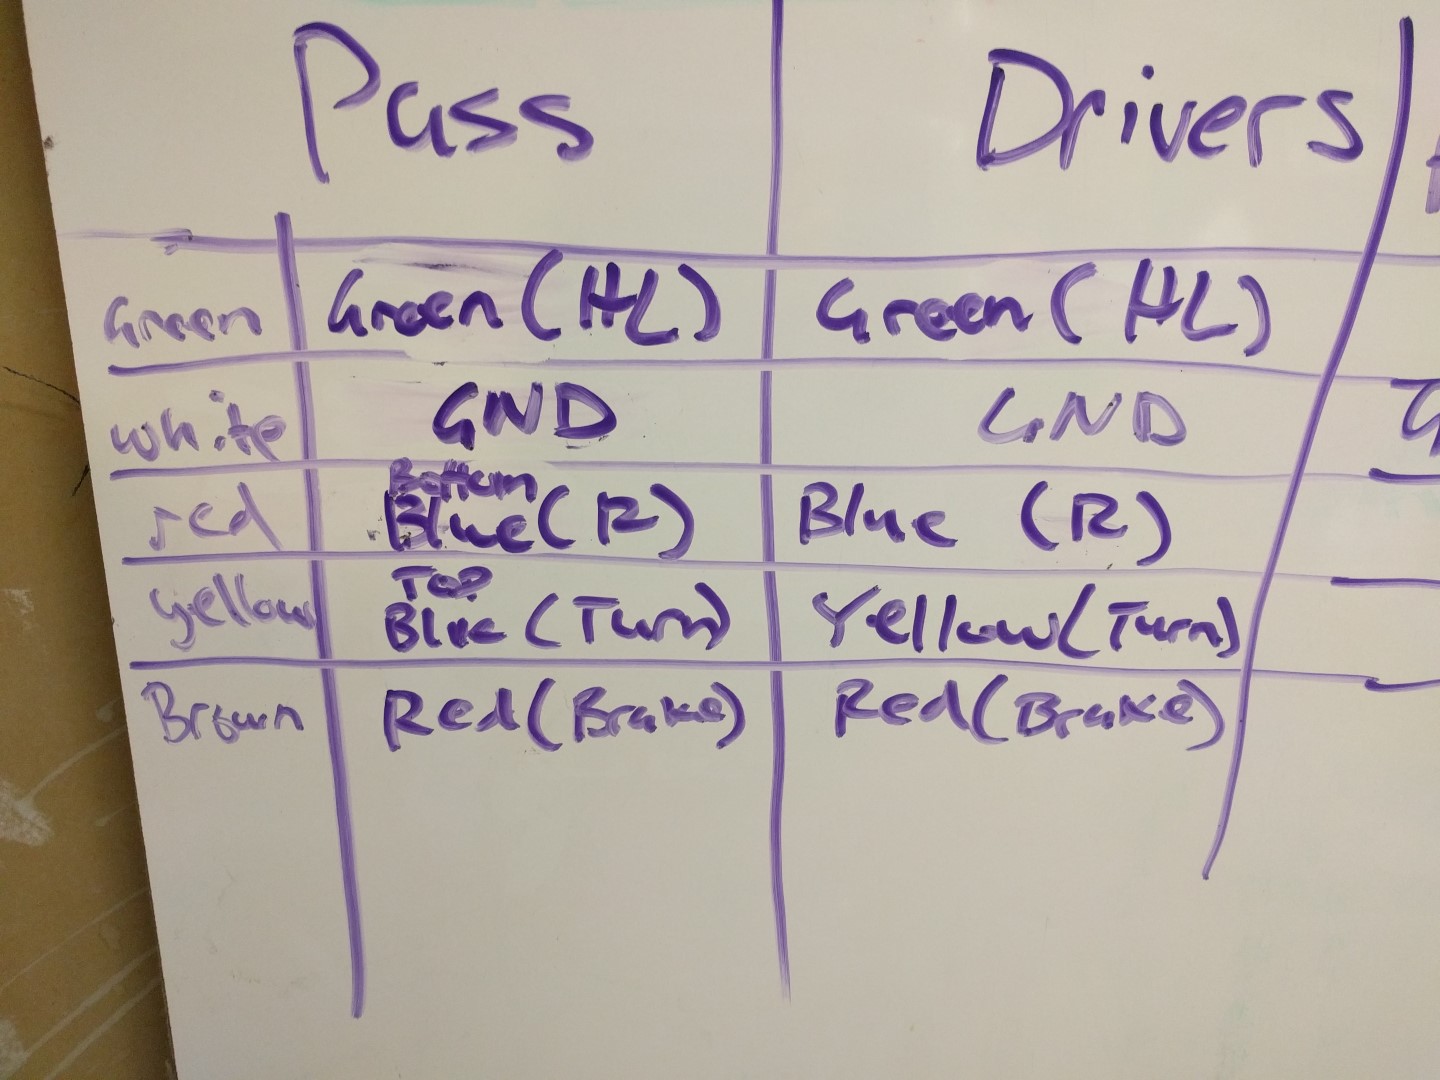 Pass Drivers
Green Green (HL) Green (HL)
white GND GND
red Bottom Blue (R) Blue (R)
yellow Top Blue (Turn) Yellow (Turn)
Brown Red (Brake) Red (Brake)